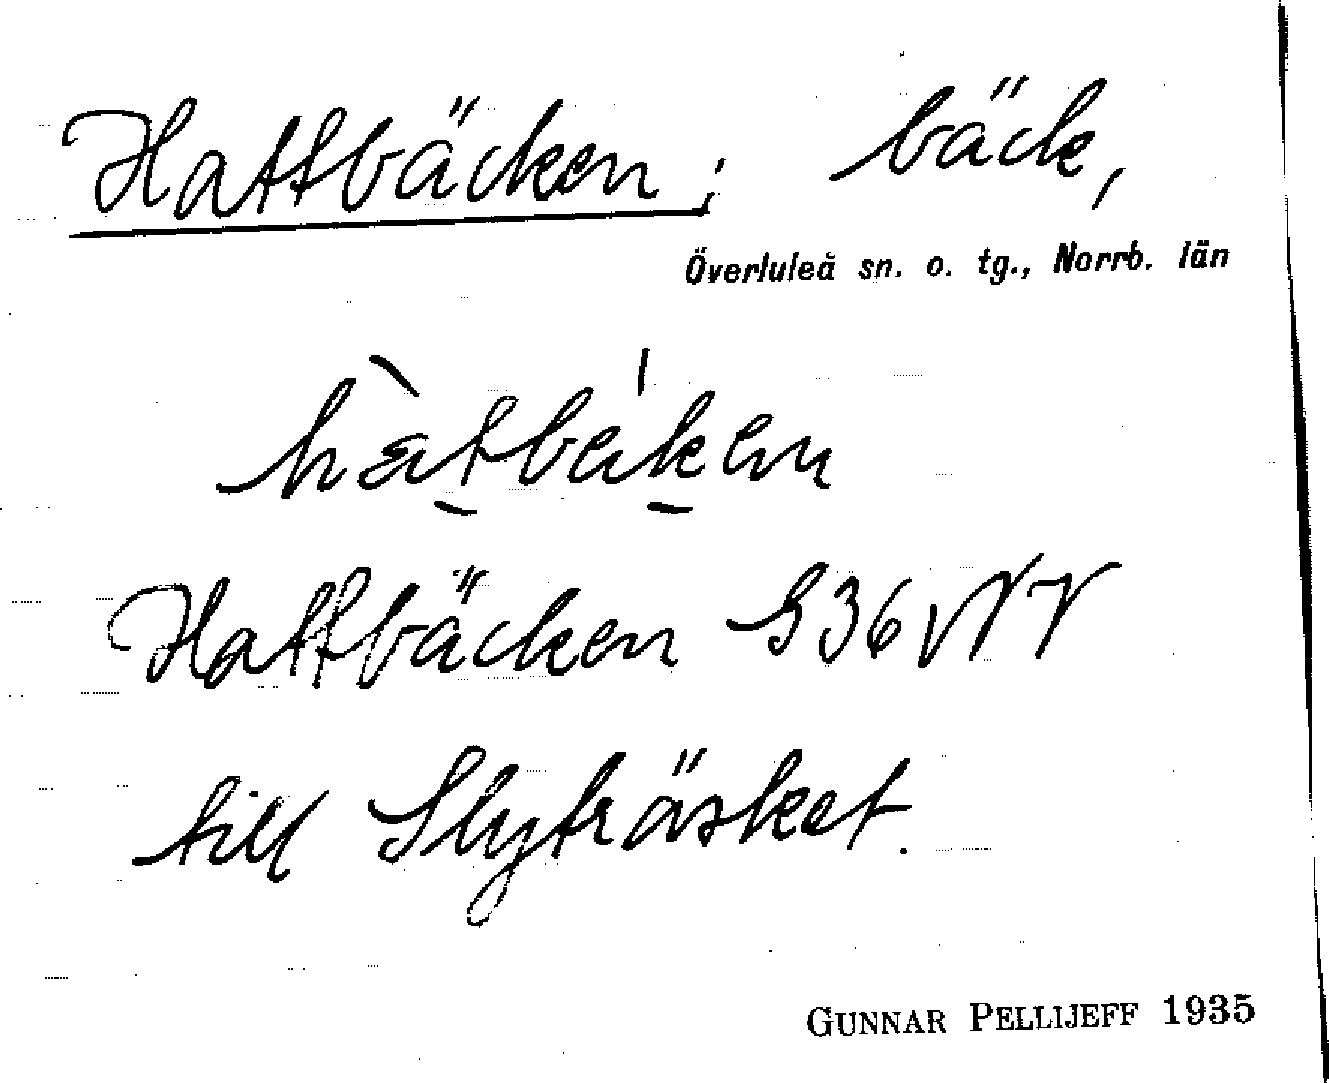 Hattbäcken; bäck,
Överluleå sn. o. tg., Norrb. län
Hattbäcken S36vNV
till Slyträsket.
GUNNAR PELLIJEFF 1935